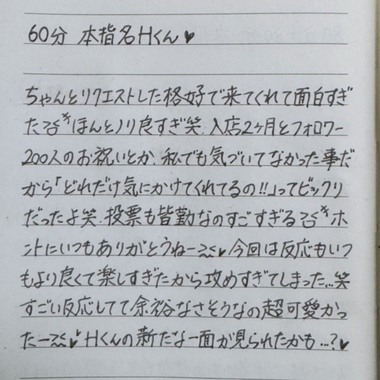 60分 本指名Hくん♥
ちゃんとリクエストした格好で来てくれて面白すぎ
たwwほんとノリ良すぎ笑.入店2ヶ月とフォロワー
200人のお祝いとか、私でも気づいてなかった事だ
から「どれだけ気にかけてくれてるの!!」ってビックリ
だったよ笑.投票も皆勤なのすごすぎる ホ
ントにいつもありがとうねー♥今回は反応もいつ
もより良くて楽しすぎたから攻めすぎてしまった...笑
すごい反応してて余裕なさそうなの超可愛かっ
たー♥Hくんの新たな一面が見られたかも...?♥